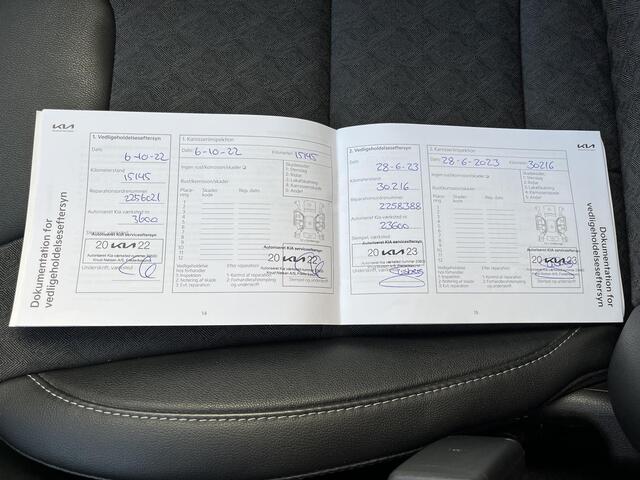 KIA
Dokumentation for
vedligeholdelseseftersyn
1. Vedligeholdelseseftersyn
Dato
6-10-22
Kilometerstand
15145
Reparationsordrenummer
2256021
Autoriseret Kia værksted nr.
3600
Autoriseret KIA serviceaftersyn
20 KIA 22
Underskrift, værksted
1. Karosseriinspektion
Dato: 6-10-22
Kilometer 15145
Ingen rust/korrosion/skader
Rust/korrosion/skader:
Placering
Skadekode
Rep. dato
Skadekoder:
1: Stenslag
2: Ridse
3: Lakafskalning
4: Karosseriskade
5: Andet
1
2
3
4
5
6
7
8
9
10
11
12
Autoriseret KIA serviceeftersyn
20 KIA 22
Vedligeholdelse
hos forhandler
1. Inspektion
2. Notering af skade
3. Evt. reparation
Efter reparation
1. Kontrol af reparation
2. Forhandlerafstempling
og underskrift
Stempel og underskrift
14
KIA
2. Vedligeholdelseseftersyn
Dato
28-6-23
Kilometerstand
30216
Reparationsordrenummer
2258388
Autoriseret Kia værksted nr.
23600
Stempel, værksted
Autoriseret KIA serviceeftersyn
20 KIA 23
Underskrift, værksted
2. Karosseriinspektion
Dato: 28-6-2023
Kilometer 30216
Ingen rust/korrosion/skader
Rust/korrosion/skader:
Placering
Skadekode
Rep. dato
Skadekoder:
1: Stenslag
2: Ridse
3: Lakafskalning
4: Karosseriskade
5: Andet
1
2
3
4
5
6
7
8
9
10
11
12
Autoriseret KIA serviceeftersyn
20 KIA 23
Vedligeholdelse
hos forhandler
1. Inspektion
2. Notering af skade
3. Evt. reparation
Efter reparation
1. Kontrol af reparation
2. Forhandlerafstempling
og underskrift
Stempel og underskrift
15
Dokumentation for
vedligeholdelseseftersyn